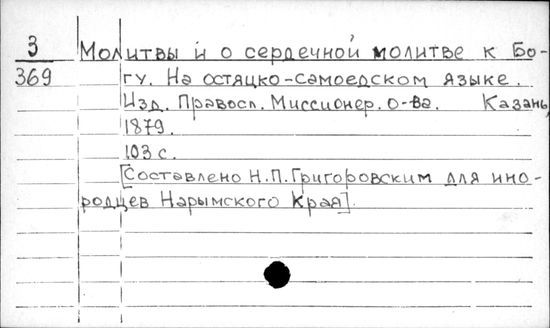 3 Молитвы и о сердечной молитве к Бо-
369 гу. На остяцко-самоедском языке.
Изд. Правосл. Миссионер. о-ва. Казань,
1879.
103 с.
[Составлено Н.П.Григоровским для ино-
родцев Нарымского Края].